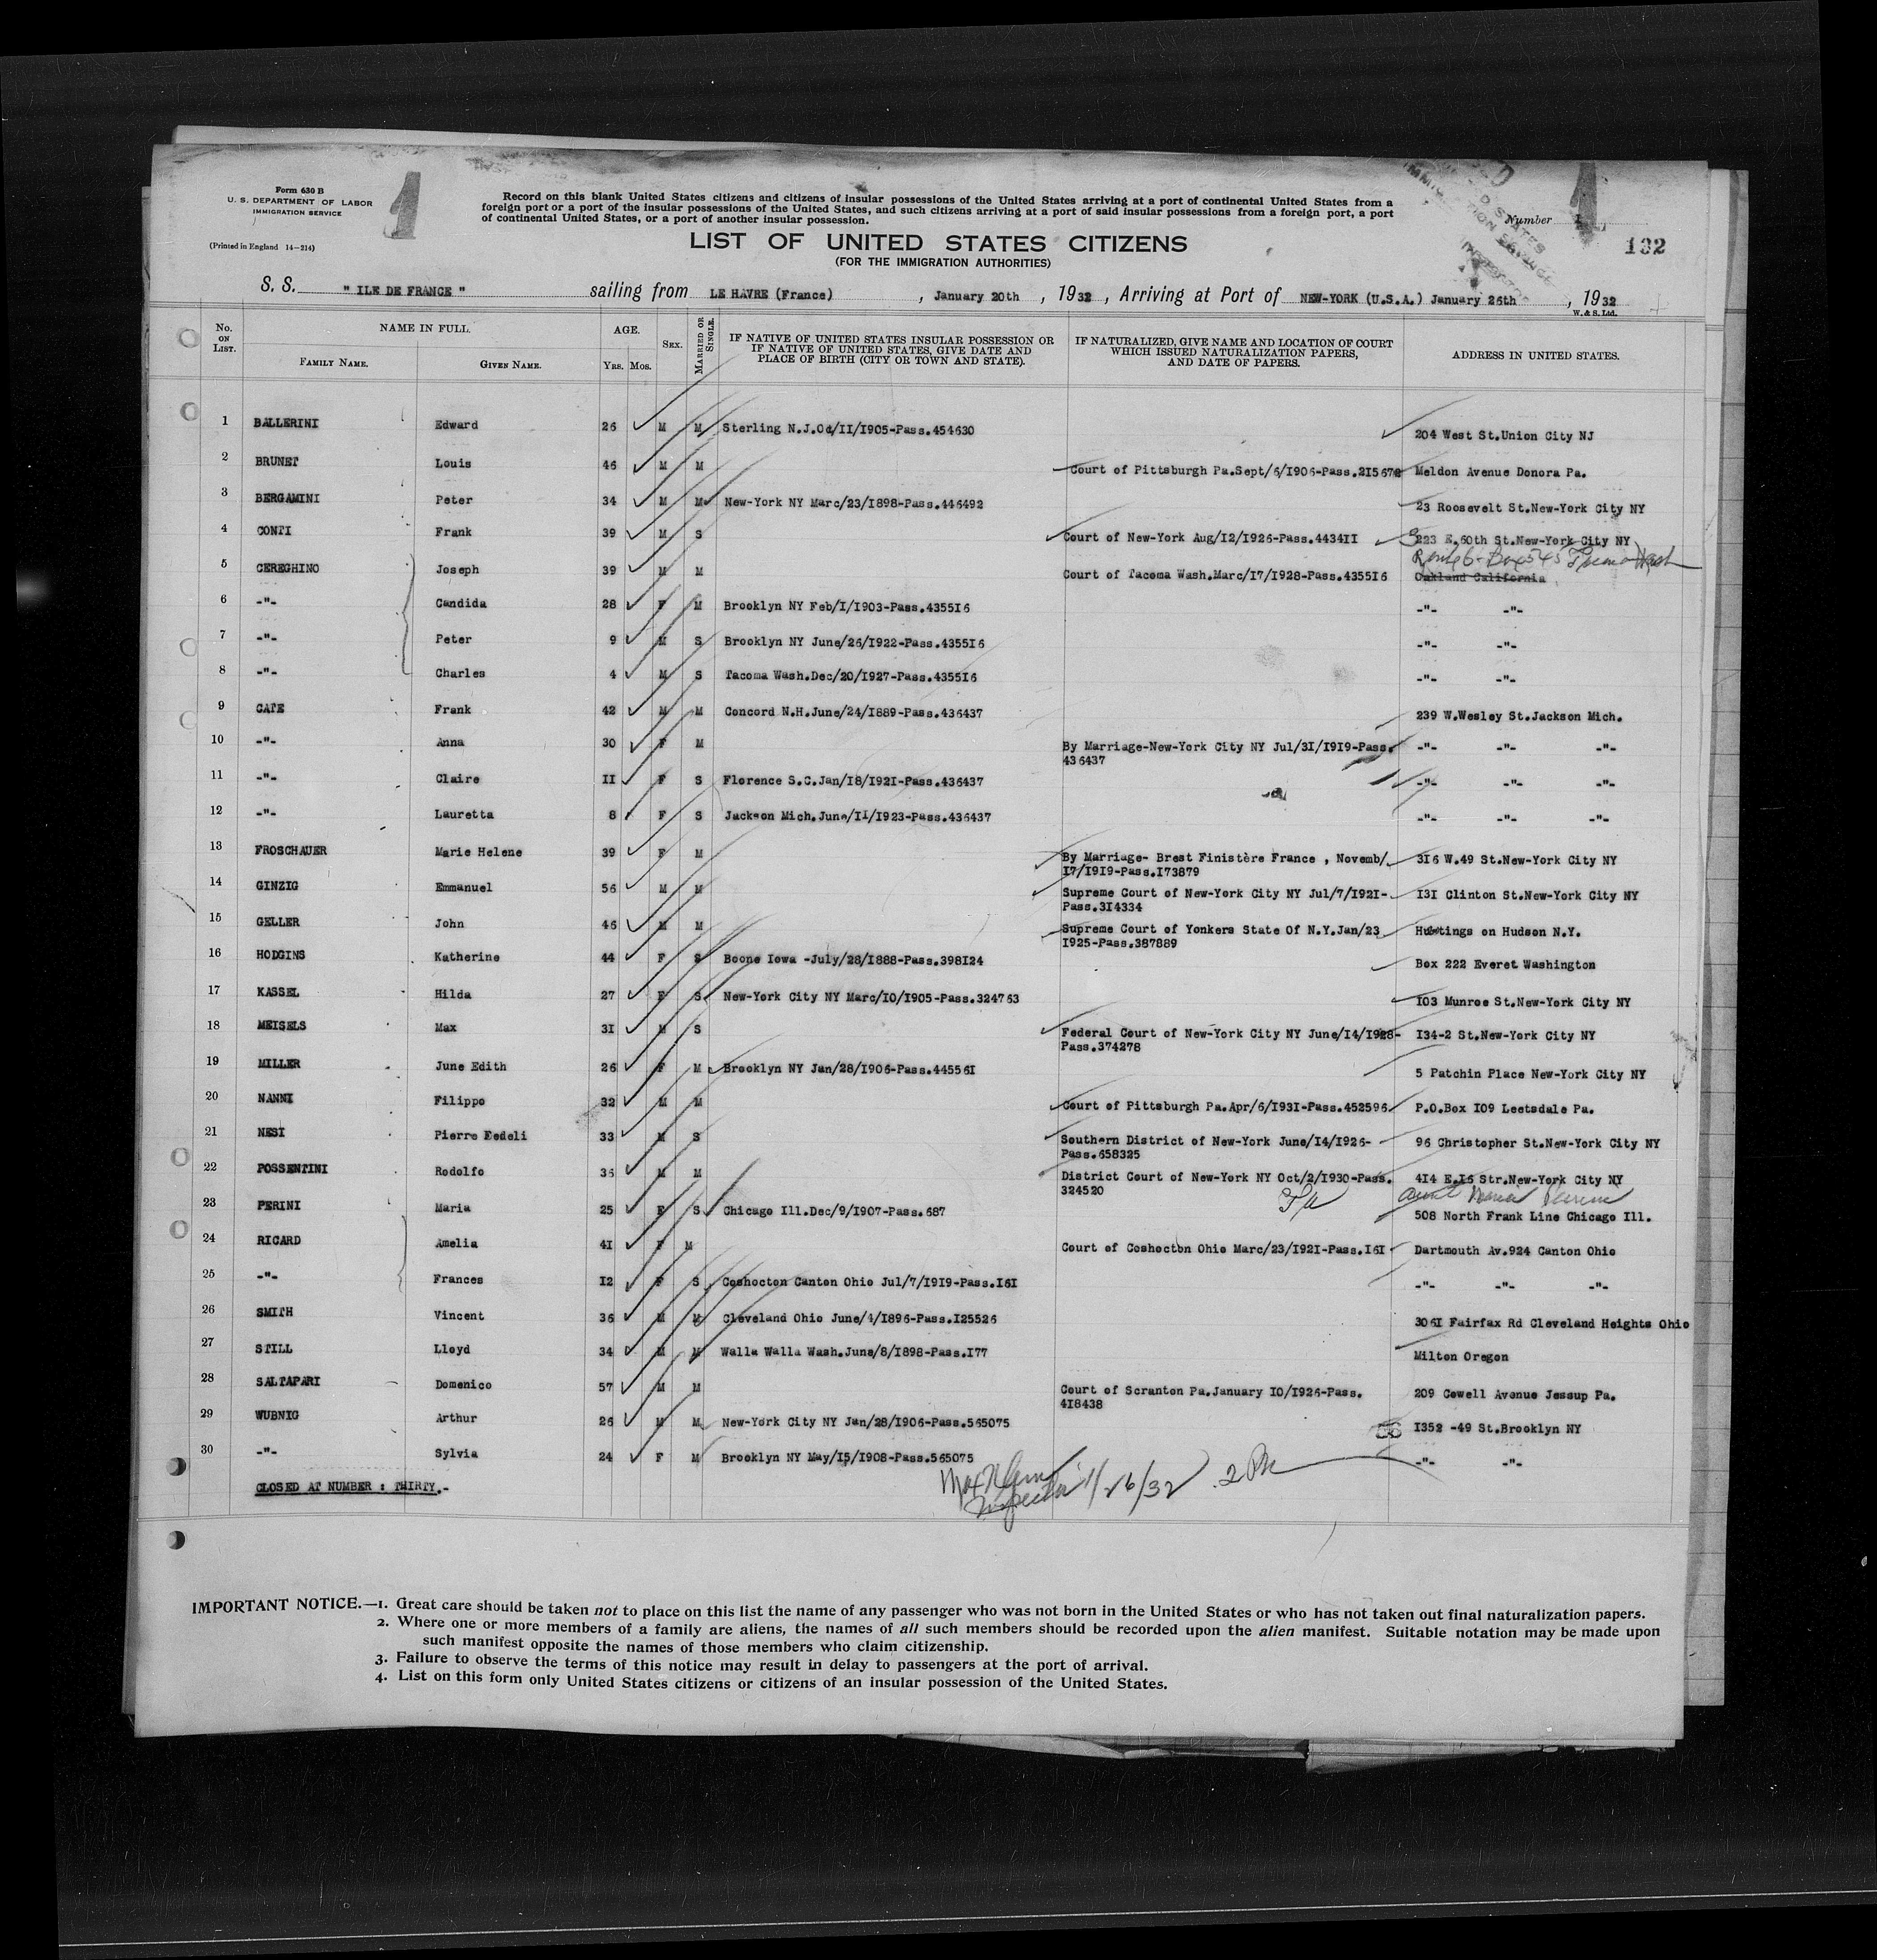 Form 630 B
U. S. DEPARTMENT OF LABOR
IMMIGRATION SERVICE
(Printed in England 14—214)
1
Record on this blank United States citizens and citizens of insular possessions of the United States arriving at a port of continental United States from a
foreign port or a port of the insular possessions of the United States, and such citizens arriving at a port of said insular possessions from a foreign port, a port
of continental United States, or a port of another insular possession.
Number 1
132
LIST OF UNITED STATES CITIZENS
(FOR THE IMMIGRATION AUTHORITIES)
S. S. " ILE DE FRANCE " sailing from LE HAVRE (France) , January 20th , 1932 , Arriving at Port of NEW-YORK (U.S.A.) January 26th , 1932
W. & S. Ltd.
No. ON LIST. NAME IN FULL. FAMILY NAME. GIVEN NAME. AGE. YRS. MOS. SEX. MARRIED OR SINGLE. IF NATIVE OF UNITED STATES INSULAR POSSESSION OR IF NATIVE OF UNITED STATES, GIVE DATE AND PLACE OF BIRTH (CITY OR TOWN AND STATE). IF NATURALIZED, GIVE NAME AND LOCATION OF COURT WHICH ISSUED NATURALIZATION PAPERS, AND DATE OF PAPERS. ADDRESS IN UNITED STATES.
1 BALLERINI Edward 26 M M Sterling N.J.Oct/II/I905-Pass.454630 204 West St.Union City NJ
2 BRUNET Louis 46 M M Court of Pittsburgh Pa.Sept/6/I906-Pass. Meldon Avenue Donora Pa.
3 BERGAMINI Peter 34 M M New-York NY Marc/23/I898-Pass.446492 23 Roosevelt St.New-York City NY
4 CONTI Frank 39 M S Court of New-York Aug/I2/I926-Pass.4434II 223 E.60th St.New-York City NY
Route 6-Box 545 Tacoma Wash
5 CEREGHINO Joseph 39 M M Court of Tacoma Wash.Marc/I7/I928-Pass.4355I6 Oakland California
6 -"- Candida 28 F M Brooklyn NY Feb/I/I903-Pass.4355I6 -"- -"-
7 -"- Peter 9 M S Brooklyn NY June/26/I922-Pass.4355I6 -"- -"-
8 -"- Charles 4 M S Tacoma Wash.Dec/20/I927-Pass.4355I6 -"- -"-
9 CATE Frank 42 M M Concord N.H.June/24/I889-Pass.436437 239 W.Wesley St.Jackson Mich.
10 -"- Anna 30 F M By Marriage-New-York City NY Jul/3I/I9I9-Pass. -"- -"- -"-
436437
11 -"- Claire II F S Florence S.C.Jan/I8/I92I-Pass.436437 -"- -"- -"-
12 -"- Lauretta 8 F S Jackson Mich.June/II/I923-Pass.436437 -"- -"- -"-
13 FROSCHAUER Marie Helene 39 F M By Marriage- Brest Finistère France , Novemb/ 3I6 W.49 St.New-York City NY
I7/I9I9-Pass.I73879
14 GINZIG Emmanuel 56 M M Supreme Court of New-York City NY Jul/7/I92I- I3I Clinton St.New-York City NY
Pass.3I4334
15 GELLER John 46 M M Supreme Court of Yonkers State Of N.Y.Jan/23 Hastings on Hudson N.Y.
I925-Pass.387889
16 HODGINS Katherine 44 F S Boone Iowa -July/28/I888-Pass.398I24 Box 222 Everet Washington
17 KASSEL Hilda 27 F S New-York City NY Marc/I0/I905-Pass.324763 I03 Munroe St.New-York City NY
18 MEISELS Max 3I M S Federal Court of New-York City NY June/I4/I928- I34-2 St.New-York City NY
Pass.374278
19 MILLER June Edith 26 F M Brooklyn NY Jan/28/I906-Pass.44556I 5 Patchin Place New-York City NY
20 NANNI Filippo 32 M M Court of Pittsburgh Pa.Apr/6/I93I-Pass.452596 P.O.Box I09 Leetsdale Pa.
21 NESI Pierre Fedeli 33 M S Southern District of New-York June/I4/I926- 96 Christopher St.New-York City NY
Pass.658325
22 POSSENTINI Rodolfo 36 M M District Court of New-York NY Oct/2/I930-Pass. 4I4 E.I6 Str.New-York City NY
324520 aunt Maria Perini
23 PERINI Maria 25 F S Chicago Ill.Dec/9/I907-Pass.687 508 North Frank Line Chicago Ill.
24 RICARD Amelia 4I F M Court of Coshocton Ohio Marc/23/I92I-Pass.I6I Dartmouth Av.924 Canton Ohio
25 -"- Frances I2 F S Coshocton Canton Ohio Jul/7/I9I9-Pass.I6I -"- -"- -"-
26 SMITH Vincent 36 M M Cleveland Ohio June/4/I896-Pass.I25526 306I Fairfax Rd Cleveland Heights Ohio
27 STILL Lloyd 34 M M Walla Walla Wash.June/8/I898-Pass.I77 Milton Oregon
28 SALTAPARI Domenico 57 M M Court of Scranton Pa.January I0/I926-Pass. 209 Cowell Avenue Jessup Pa.
4I8438
29 WUBNIG Arthur 26 M M New-York City NY Jan/28/I906-Pass.565075 I352 -49 St.Brooklyn NY
30 -"- Sylvia 24 F M Brooklyn NY May/I5/I908-Pass.565075 -"- -"-
CLOSED AT NUMBER : THIRTY.-
Inspector 1/26/32 2 PM
IMPORTANT NOTICE.—1. Great care should be taken not to place on this list the name of any passenger who was not born in the United States or who has not taken out final naturalization papers.
2. Where one or more members of a family are aliens, the names of all such members should be recorded upon the alien manifest. Suitable notation may be made upon
such manifest opposite the names of those members who claim citizenship.
3. Failure to observe the terms of this notice may result in delay to passengers at the port of arrival.
4. List on this form only United States citizens or citizens of an insular possession of the United States.